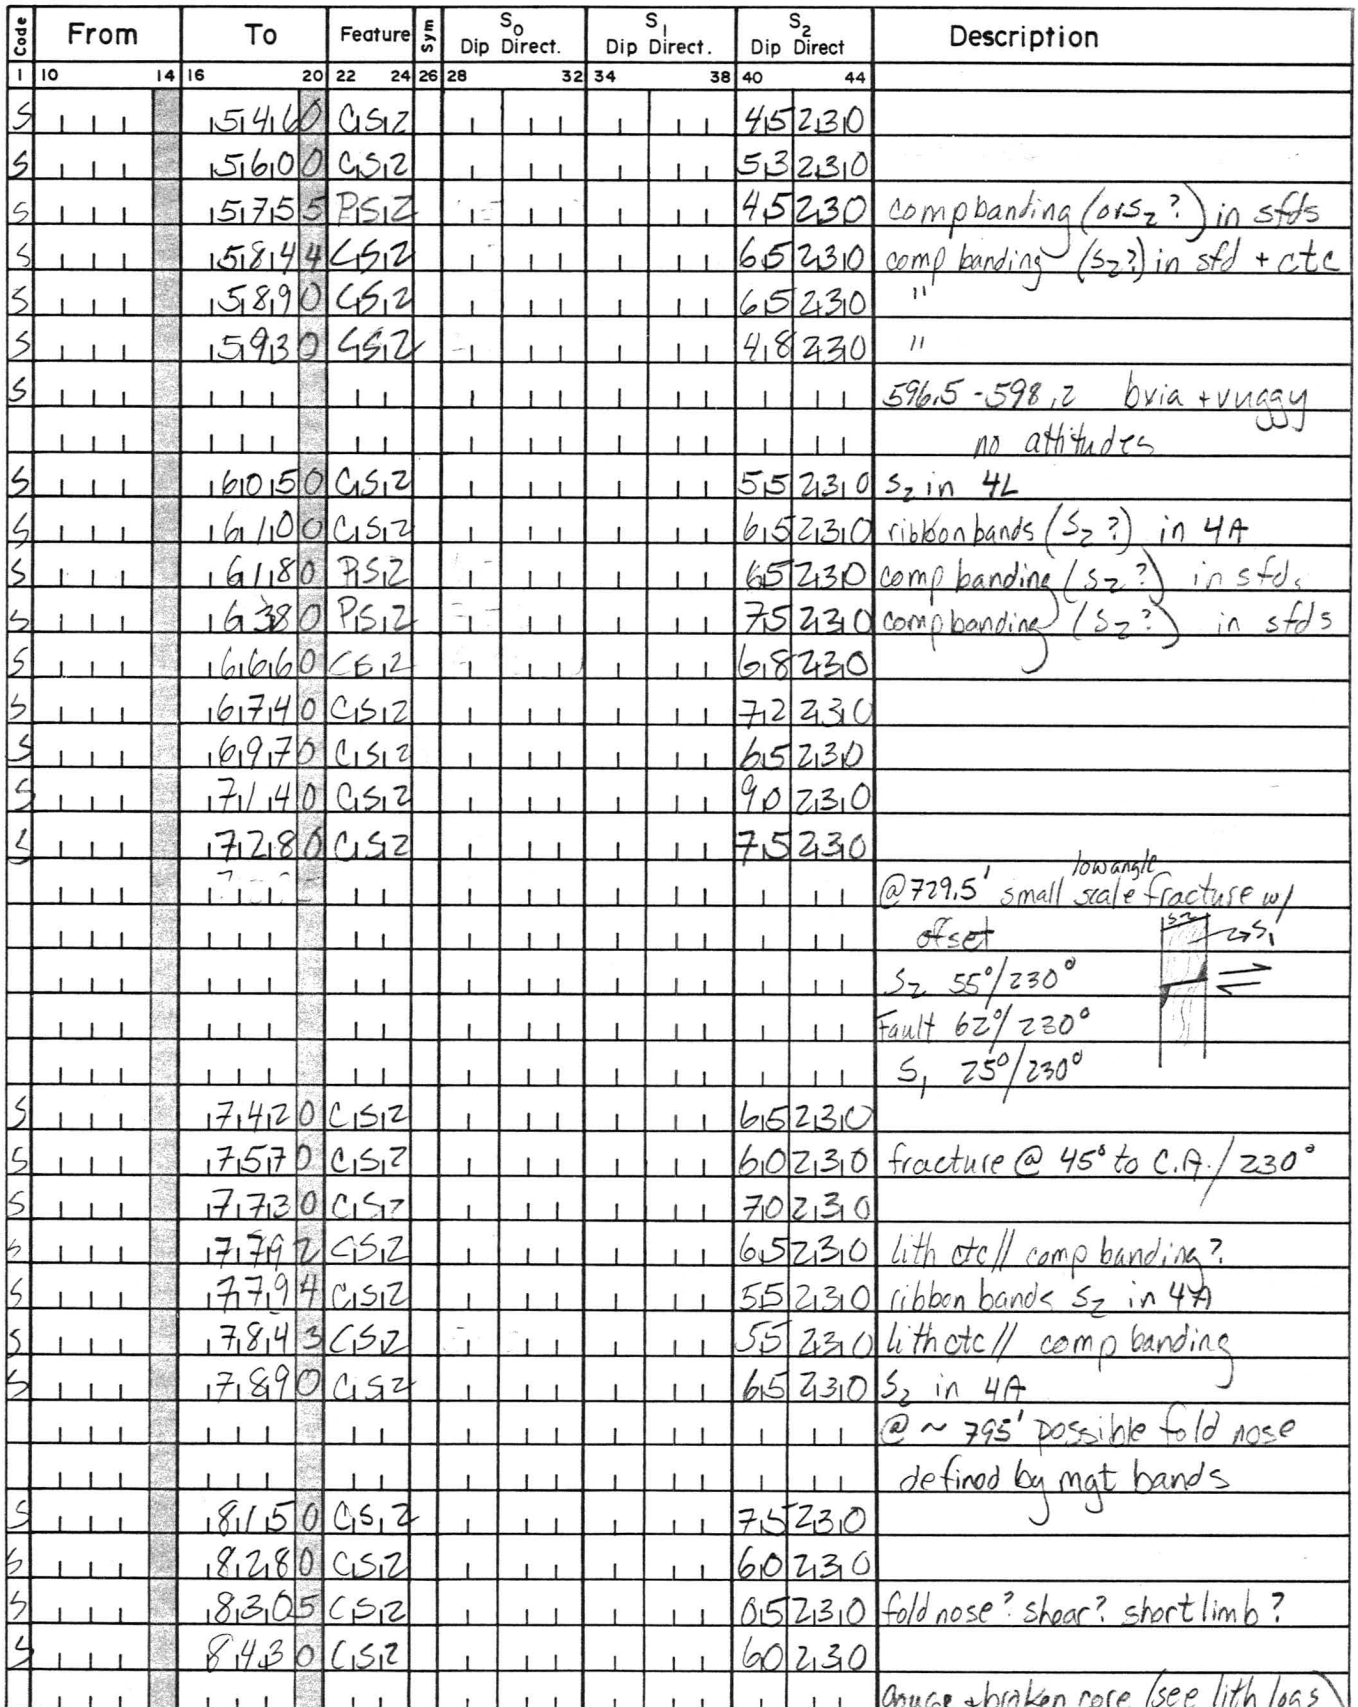 Code From To Feature Sym S0 Dip Direct. S1 Dip Direct. S2 Dip Direct Description
1 10 14 16 20 22 24 26 28 32 34 38 40 44
S 5460 CS2 45230
S 5600 CS2 53230
S 5755 PS2 45230 comp banding (or S2?) in sfds
S 5844 CS2 65230 comp banding (S2?) in sfd + ctc
S 5890 CS2 65230 "
S 5930 CS2 48230 "
S 596.5 - 598.2 bxia + vuggy
no attitudes
S 6050 CS2 55230 S2 in 4L
S 6100 CS2 65230 ribbon bands (S2?) in 4A
S 6180 PS2 65230 comp banding (S2?) in sfds
S 6380 PS2 75230 comp banding (S2?) in sfds
S 6660 CS2 68230
S 6740 CS2 72230
S 6970 CS2 65230
S 7140 CS2 90230
S 7280 CS2 75230
low angle
@ 729.5' small scale fracture w/
offset S2 S1
S2 55°/230°
Fault 62°/230°
S1 25°/230°
S 7420 CS2 65230
S 7570 CS2 60230 fracture @ 45° to C.A./230°
S 7730 CS2 70230
S 7792 CS2 65230 lith ctc // comp banding?
S 7794 CS2 55230 ribbon bands S2 in 4A
S 7843 CS2 55230 lith ctc // comp banding
S 7890 CS2 65230 S2 in 4A
@ ~ 795' possible fold nose
defined by mgt bands
S 8150 CS2 75230
S 8280 CS2 60230
S 8305 CS2 05230 fold nose? shear? short limb?
S 8430 CS2 60230
gouge + broken core (see lith logs)